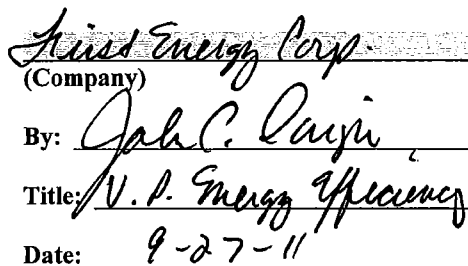 First Energy Corp.
(Company)
By: John C. Dargie
Title: V.P. Energy Efficiency
Date: 9-27-11